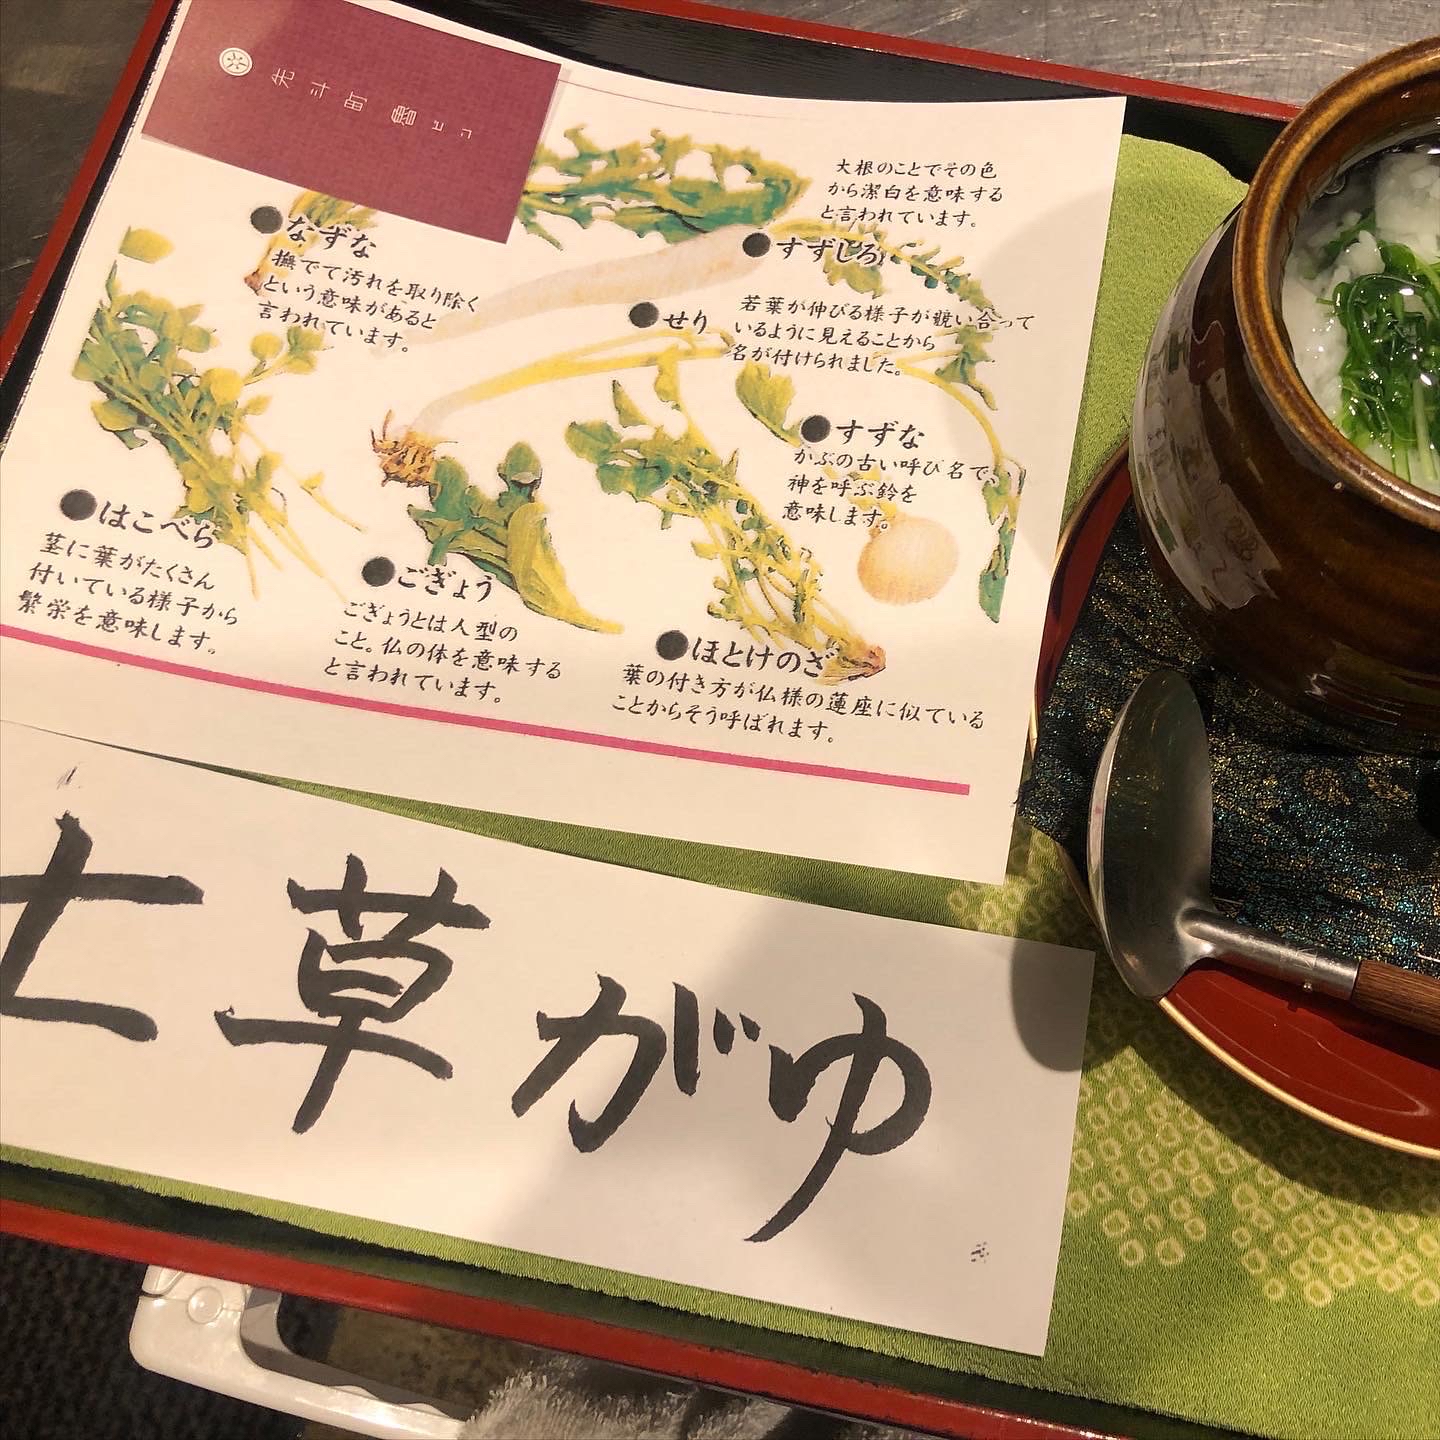 先斗町 魯ビン
大根のことでその色
から潔白を意味する
と言われています。
●なずな
撫でて汚れを取り除く
という意味があると
言われています。
●すずしろ
●せり
若葉が伸びる様子が競い合って
いるように見えることから
名が付けられました。
●すずな
かぶの古い呼び名で、
神を呼ぶ鈴を
意味します。
●はこべら
茎に葉がたくさん
付いている様子から
繁栄を意味します。
●ごぎょう
ごぎょうとは人型の
こと。仏の体を意味する
と言われています。
●ほとけのざ
葉の付き方が仏様の蓮座に似ている
ことからそう呼ばれます。
七草がゆ